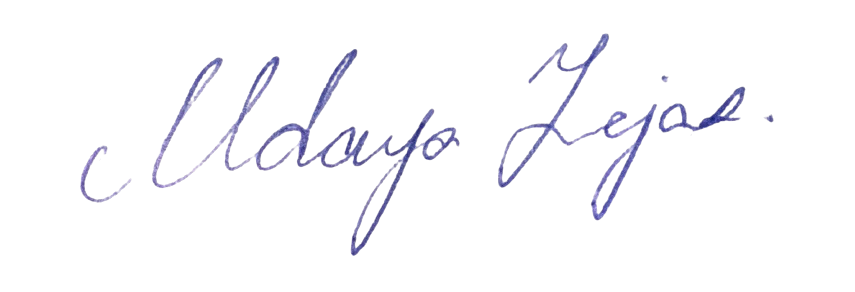 Udaya Tejas.